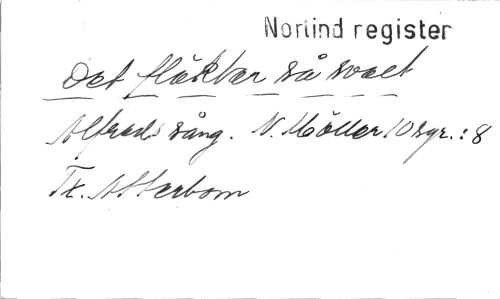 Norlind register
Det fläktar så svalt
Alfreds sång. N. Möller 10 sgr. : 8
Tx. Atterbom